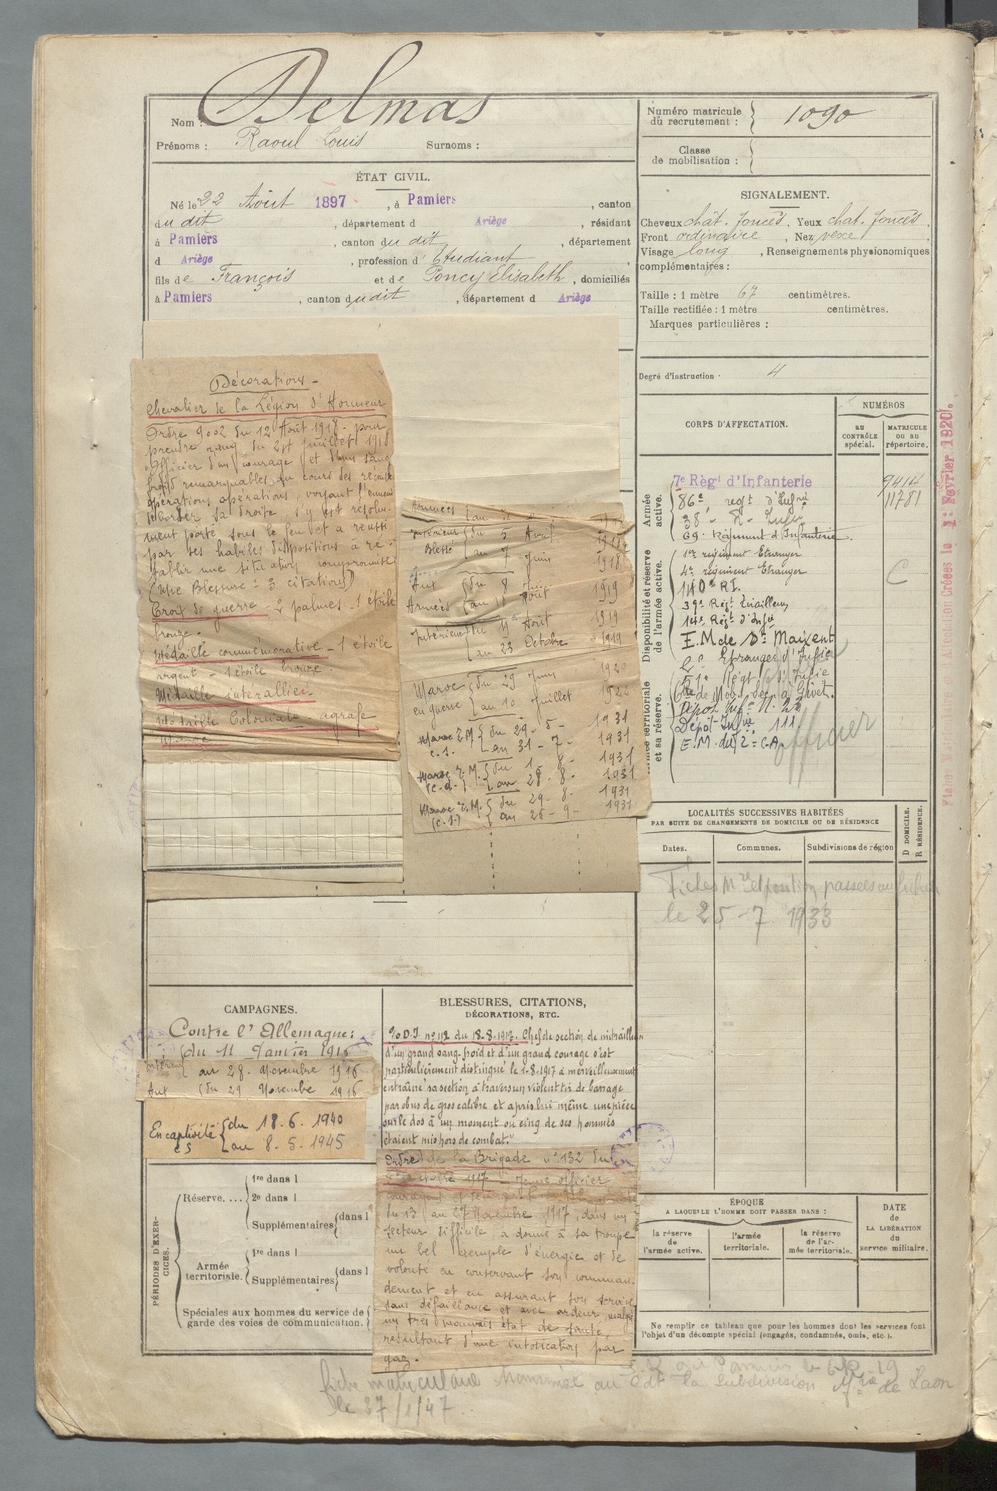 Nom : Delmas
Prénoms : Raoul Louis Surnoms :
ÉTAT CIVIL.
Né le 22 Août 1897, à Pamiers, canton
du dit, département d Ariège résidant
à Pamiers, canton du dit, département
d Ariège, profession d'Etudiant
fils de François et de Poncy Elisabeth, domiciliés
à Pamiers, canton du dit, département d Ariège
Numéro matricule du recrutement : 1090
Classe de mobilisation :
SIGNALEMENT.
Cheveux chât. foncés, Yeux chat. foncés,
Front ordinaire, Nez vexe
Visage long, Renseignements physionomiques
complémentaires :
Taille : 1 mètre 67 centimètres.
Taille rectifiée : 1 mètre centimètres.
Marques particulières :
Degré d'instruction . 4
CORPS D'AFFECTATION.
NUMÉROS
AU CONTRÔLE spécial.
MATRICULE OU AU répertoire.
Armée active.
Disponibilité et réserve de l'armée active.
Armée territoriale et sa réserve.
7e Régt d'Infanterie 9414
86e regt d'Infrie 11781
38e R. Infie
69. Régiment d'Infanterie
1er régiment Etranger
4e régiment Etranger
140e R.I. C
39e Régt. Tirailleurs
14e Régt d'Infie
E.M de St Maixent
2e Etranger d'Infie
51e Régt d'Infie
Cre de Mob. Séc. à Givet.
Dépot Inf. N. 23
Dépôt Infie 111
E.M. du 2e C.A.
officier
1er Février 1920.
Décorations -
Chevalier de la Légion d'Honneur
Ordre 9002 du 12 Août 1918 - pour
prendre rang du 21 juillet 1918
Officier d'un courage et d'un sang
froid remarquables au cours des récentes
opérations opérations, voyant l'ennemi
déborder sa droite, s'y est résolu-
ment porté sous le feu et a réussi
par ses habiles dispositions à ré-
tablir une situation compromise
(Une Blessure : 3 citations)
Croix de guerre - 2 palmes - 1 étoile
bronze.
Médaille commémorative - 1 étoile
argent - 1 étoile bronze.
Médaille interalliée
Médaille Coloniale agrafe
Maroc
Intérieur du 5 Avril 1918
Blessé au 7 Juin 1918
Aux Armées du 8 Juin 1918
au 18 Août 1919
Intérieur du 19 Août 1919
au 23 Octobre 1919
Maroc du 29 Juin 1920
en guerre au 10 Juillet 1922
Maroc T.M. du 29 - 5 - 1931
c.1. au 31 - 7 - 1931
Maroc T.M. du 1 - 8 - 1931
(c.d.) au 28 - 8 - 1931
Maroc T.M. du 29 - 8 - 1931
(c.1.) au 25 - 9 - 1931
LOCALITÉS SUCCESSIVES HABITÉES
PAR SUITE DE CHANGEMENTS DE DOMICILE OU DE RÉSIDENCE
Dates. Communes. Subdivisions de région
D DOMICILE. R RÉSIDENCE.
Fiches Mle et position passées au fichier
le 25 - 7 1933
CAMPAGNES.
Contre l'Allemagne :
du 11 Janvier 1916
au 28 Novembre 1916
Aux du 29 Novembre 1916
En captivité du 18.6. 1940
CS au 8.5.1945
BLESSURES, CITATIONS,
DÉCORATIONS, ETC.
O.D.I n° 112 du 18.8.1917. Chef de section de mitrailleuses
d'un grand sang-froid et d'un grand courage s'est
particulièrement distingué le 1-8-1917 a merveilleusement
entraîné sa section à travers un violent tir de barrage
par obus de gros calibre et a pris lui même une pièce
sur le dos à un moment où cinq de ses hommes
étaient mis hors de combat."
Ordre de la Brigade n° 132 du
1917 - Jeune officier
courageux
du 13 au 27 Novembre 1917, dans un
secteur difficile, a donné à sa troupe
un bel exemple d'énergie et de
volonté en conservant son comman-
dement et en assurant son service
sans défaillance et avec ardeur malgré
un très mauvais état de santé,
résultant d'une intoxication par
gaz.
PÉRIODES D'EXERCICES.
Réserve. ... 1re dans l
2e dans l
Supplémentaires dans l
Armée territoriale. 1re dans l
Supplémentaires dans l
Spéciales aux hommes du service de
garde des voies de communication.
ÉPOQUE
A LAQUELLE L'HOMME DOIT PASSER DANS :
la réserve de l'armée active.
l'armée territoriale.
la réserve de l'armée territoriale.
DATE de LA LIBÉRATION du service militaire.
Ne remplir ce tableau que pour les hommes dont les services font
l'objet d'un décompte spécial (engagés, condamnés, omis, etc.).
fiche matriculaire transmise au Cdt la Subdivision Mre de Laon
le 27/1/47.